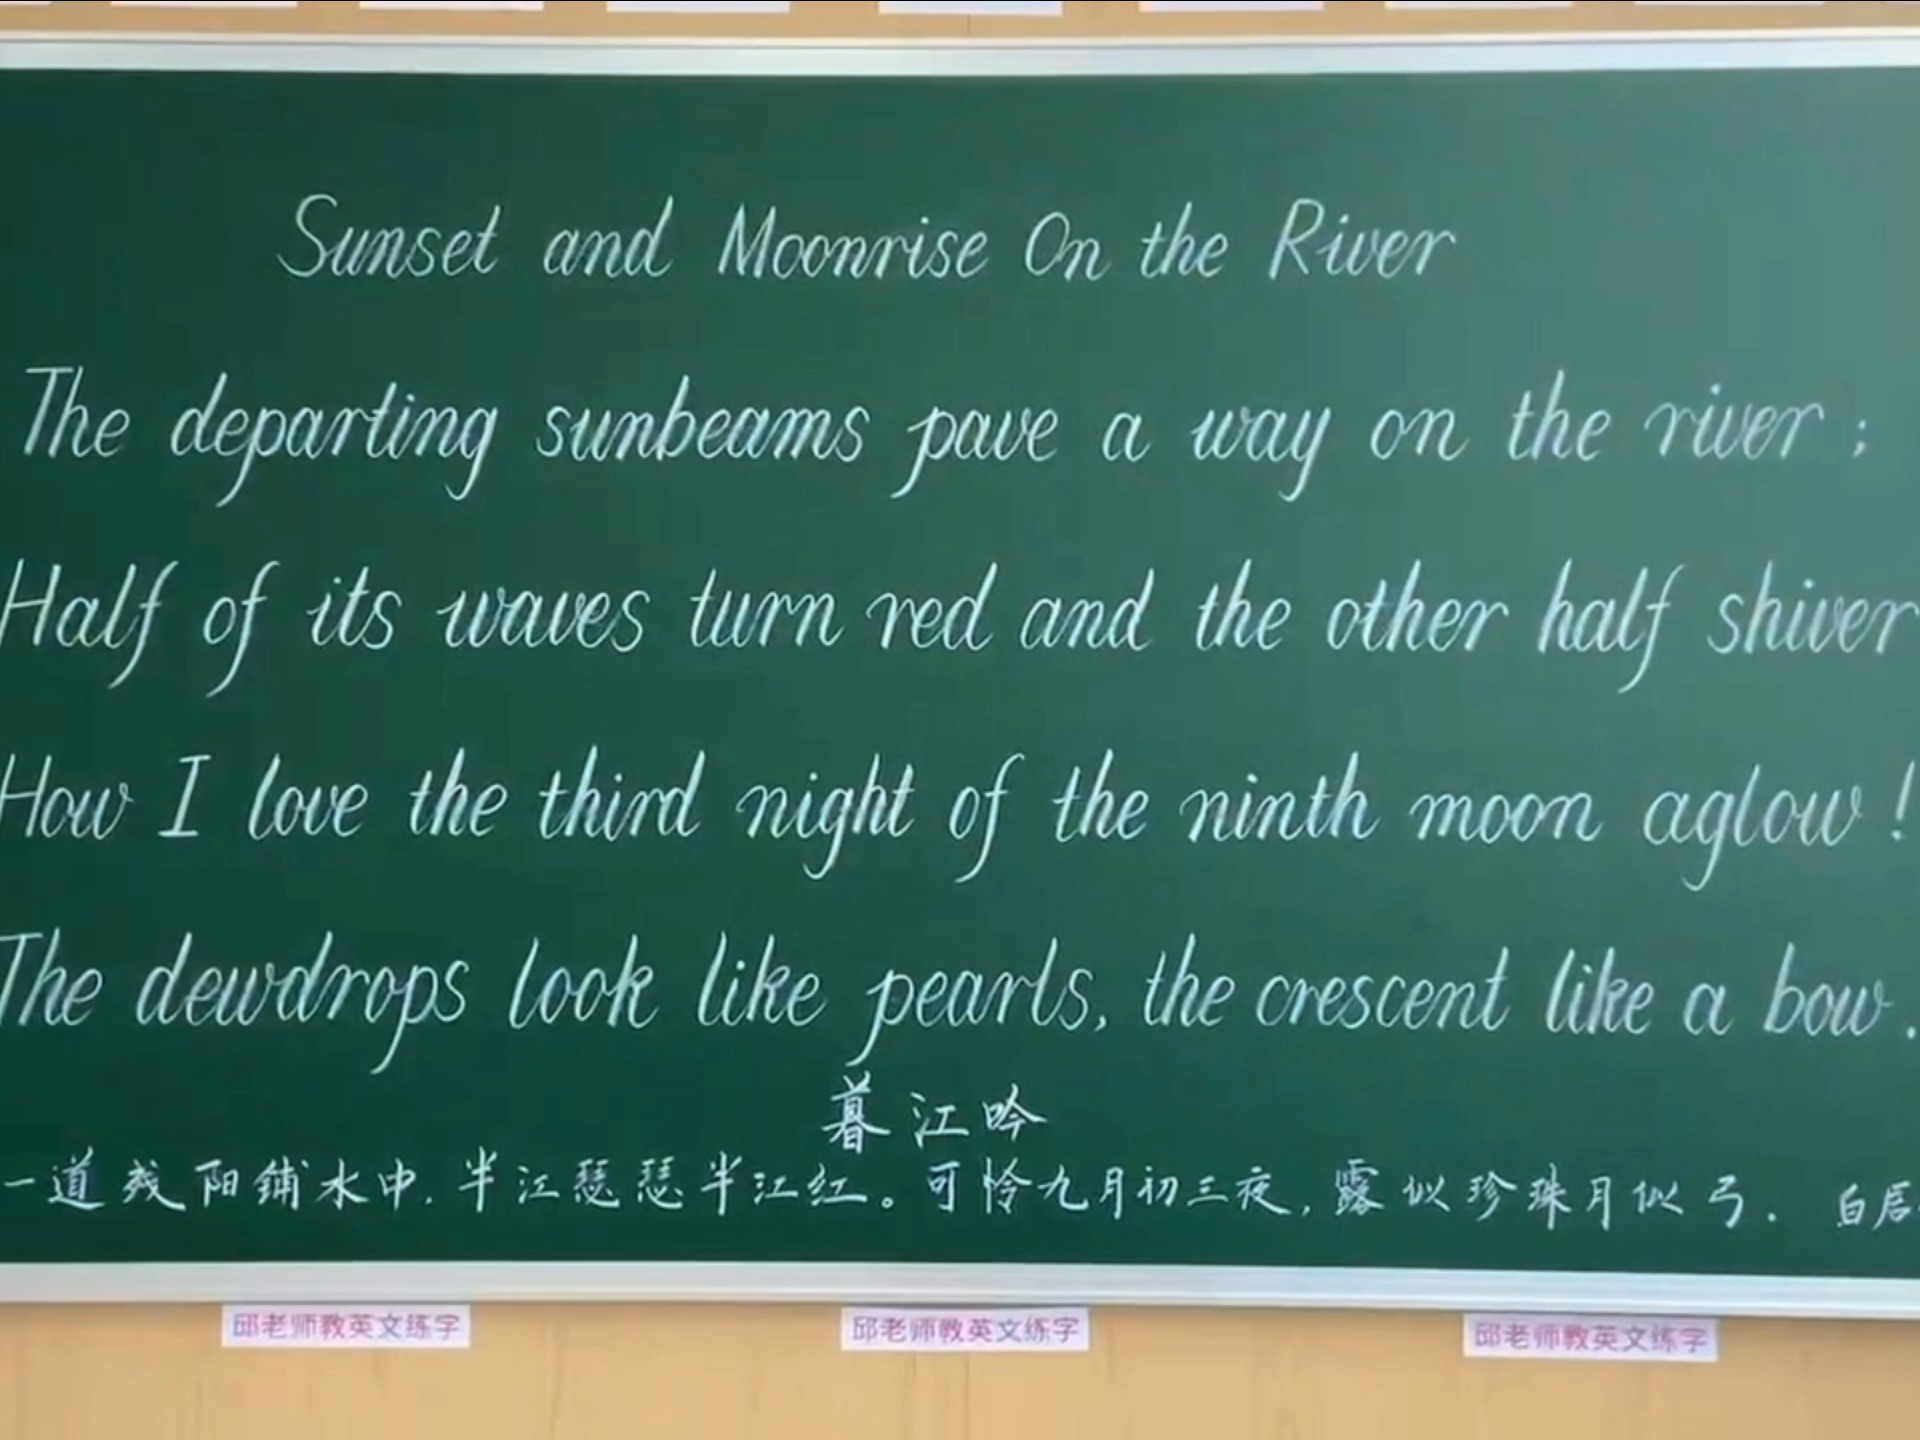 Sunset and Moonrise On the River
The departing sunbeams pave a way on the river ;
Half of its waves turn red and the other half shiver
How I love the third night of the ninth moon aglow !
The dewdrops look like pearls, the crescent like a bow.
暮江吟
一道残阳铺水中.半江瑟瑟半江红。可怜九月初三夜,露似珍珠月似弓. 白居
邱老师教英文练字 邱老师教英文练字 邱老师教英文练字